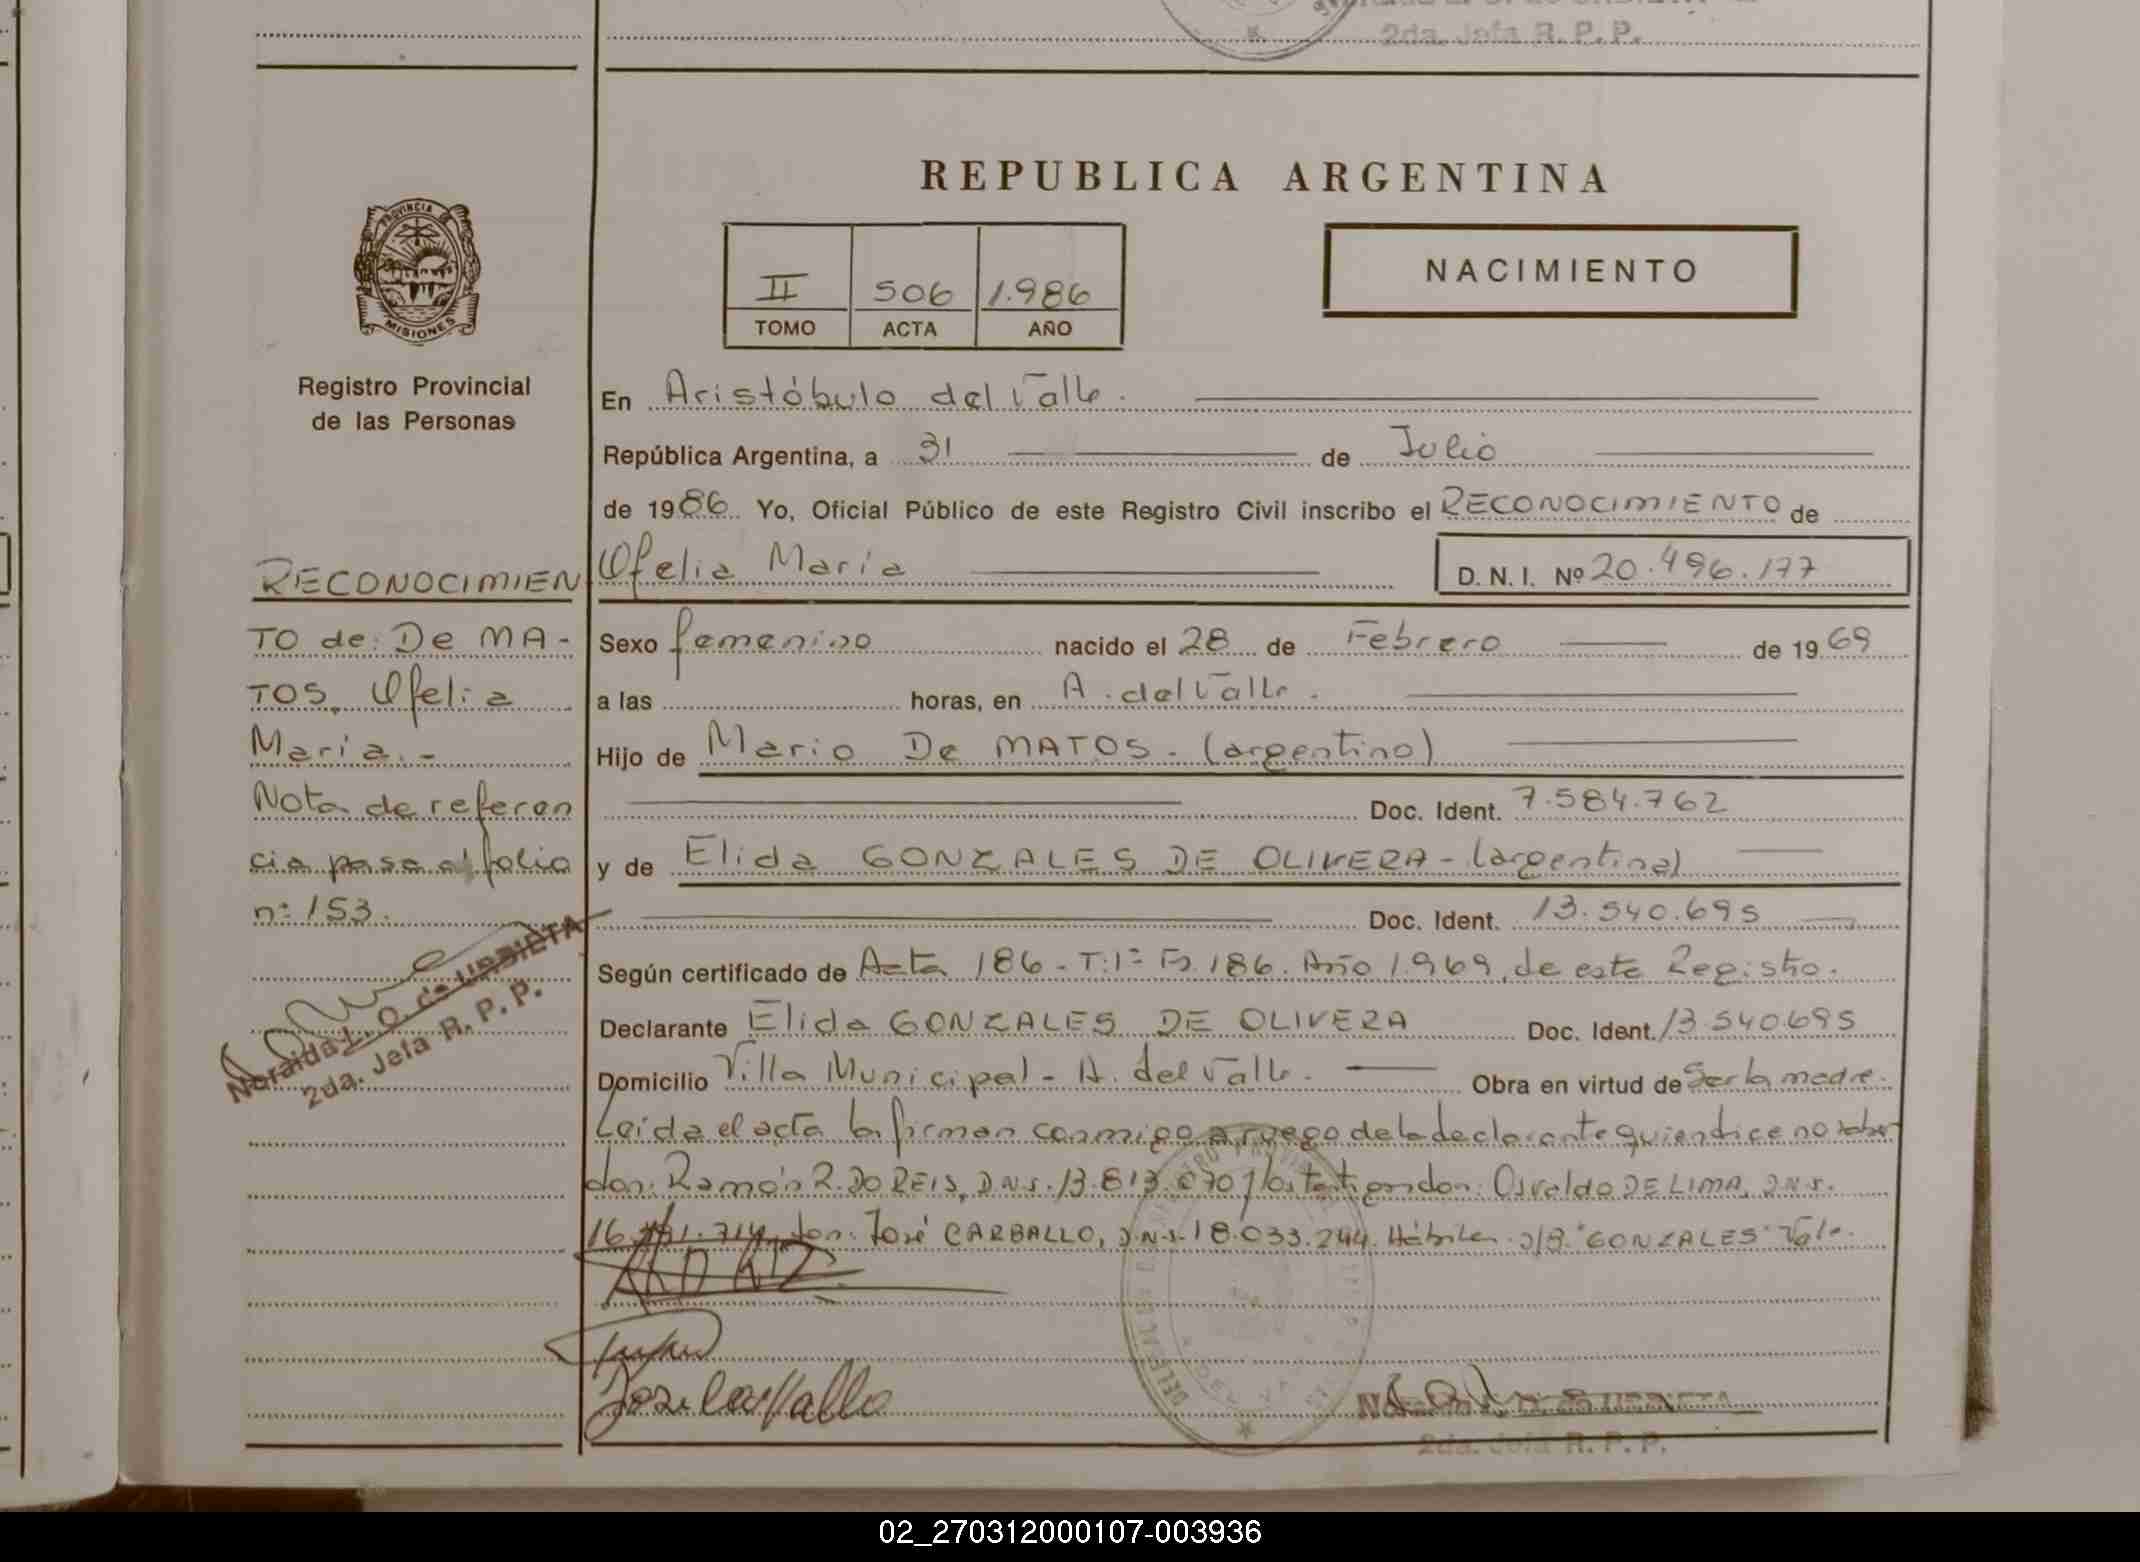 2da. Jefa R. P. P.
REPUBLICA ARGENTINA
PROVINCIA DE
MISIONES
Registro Provincial
de las Personas
II 506 1.986
TOMO ACTA AÑO
NACIMIENTO
En Aristóbulo del Valle.
República Argentina, a 31 de Julio
de 1986. Yo, Oficial Público de este Registro Civil inscribo el RECONOCIMIENTO de
Ofelia María D. N. I. Nº 20.496.177
Sexo femenino nacido el 28 de Febrero de 1969
a las horas, en A. del Valle.
Hijo de Mario De MATOS - (argentino)
Doc. Ident. 7.584.762
y de Elida GONZALES DE OLIVERA - (argentina)
Doc. Ident. 13.540.695
Según certificado de Acta 186 - T: 1º Fº 186. Año 1.969, de este Registro.
Declarante Elida GONZALES DE OLIVERA Doc. Ident. 13.540695
Domicilio Villa Municipal - A. del Valle. Obra en virtud de Ser la madre.
Leida el acta la firman conmigo a ruego de la declarante quien dice no saber
don: Ramón R. DO REIS, D.N.I. 13.813.070 y los testigos don: Osvaldo DE LIMA, D.N.I.
16. .714, don: José CARBALLO, D.N.I. 18.033.244. Hábiles. S/B: "GONZALES" Vale.
José Carvallo
2da. Jefa R. P. P.
RECONOCIMIEN
TO de: De MA-
TOS, Ofelia
María.-
Nota de referen
cia pasa al folio
nº 153.
Noraida L. O. de URBIETA
2da. Jefa R. P. P.
02_270312000107-003936